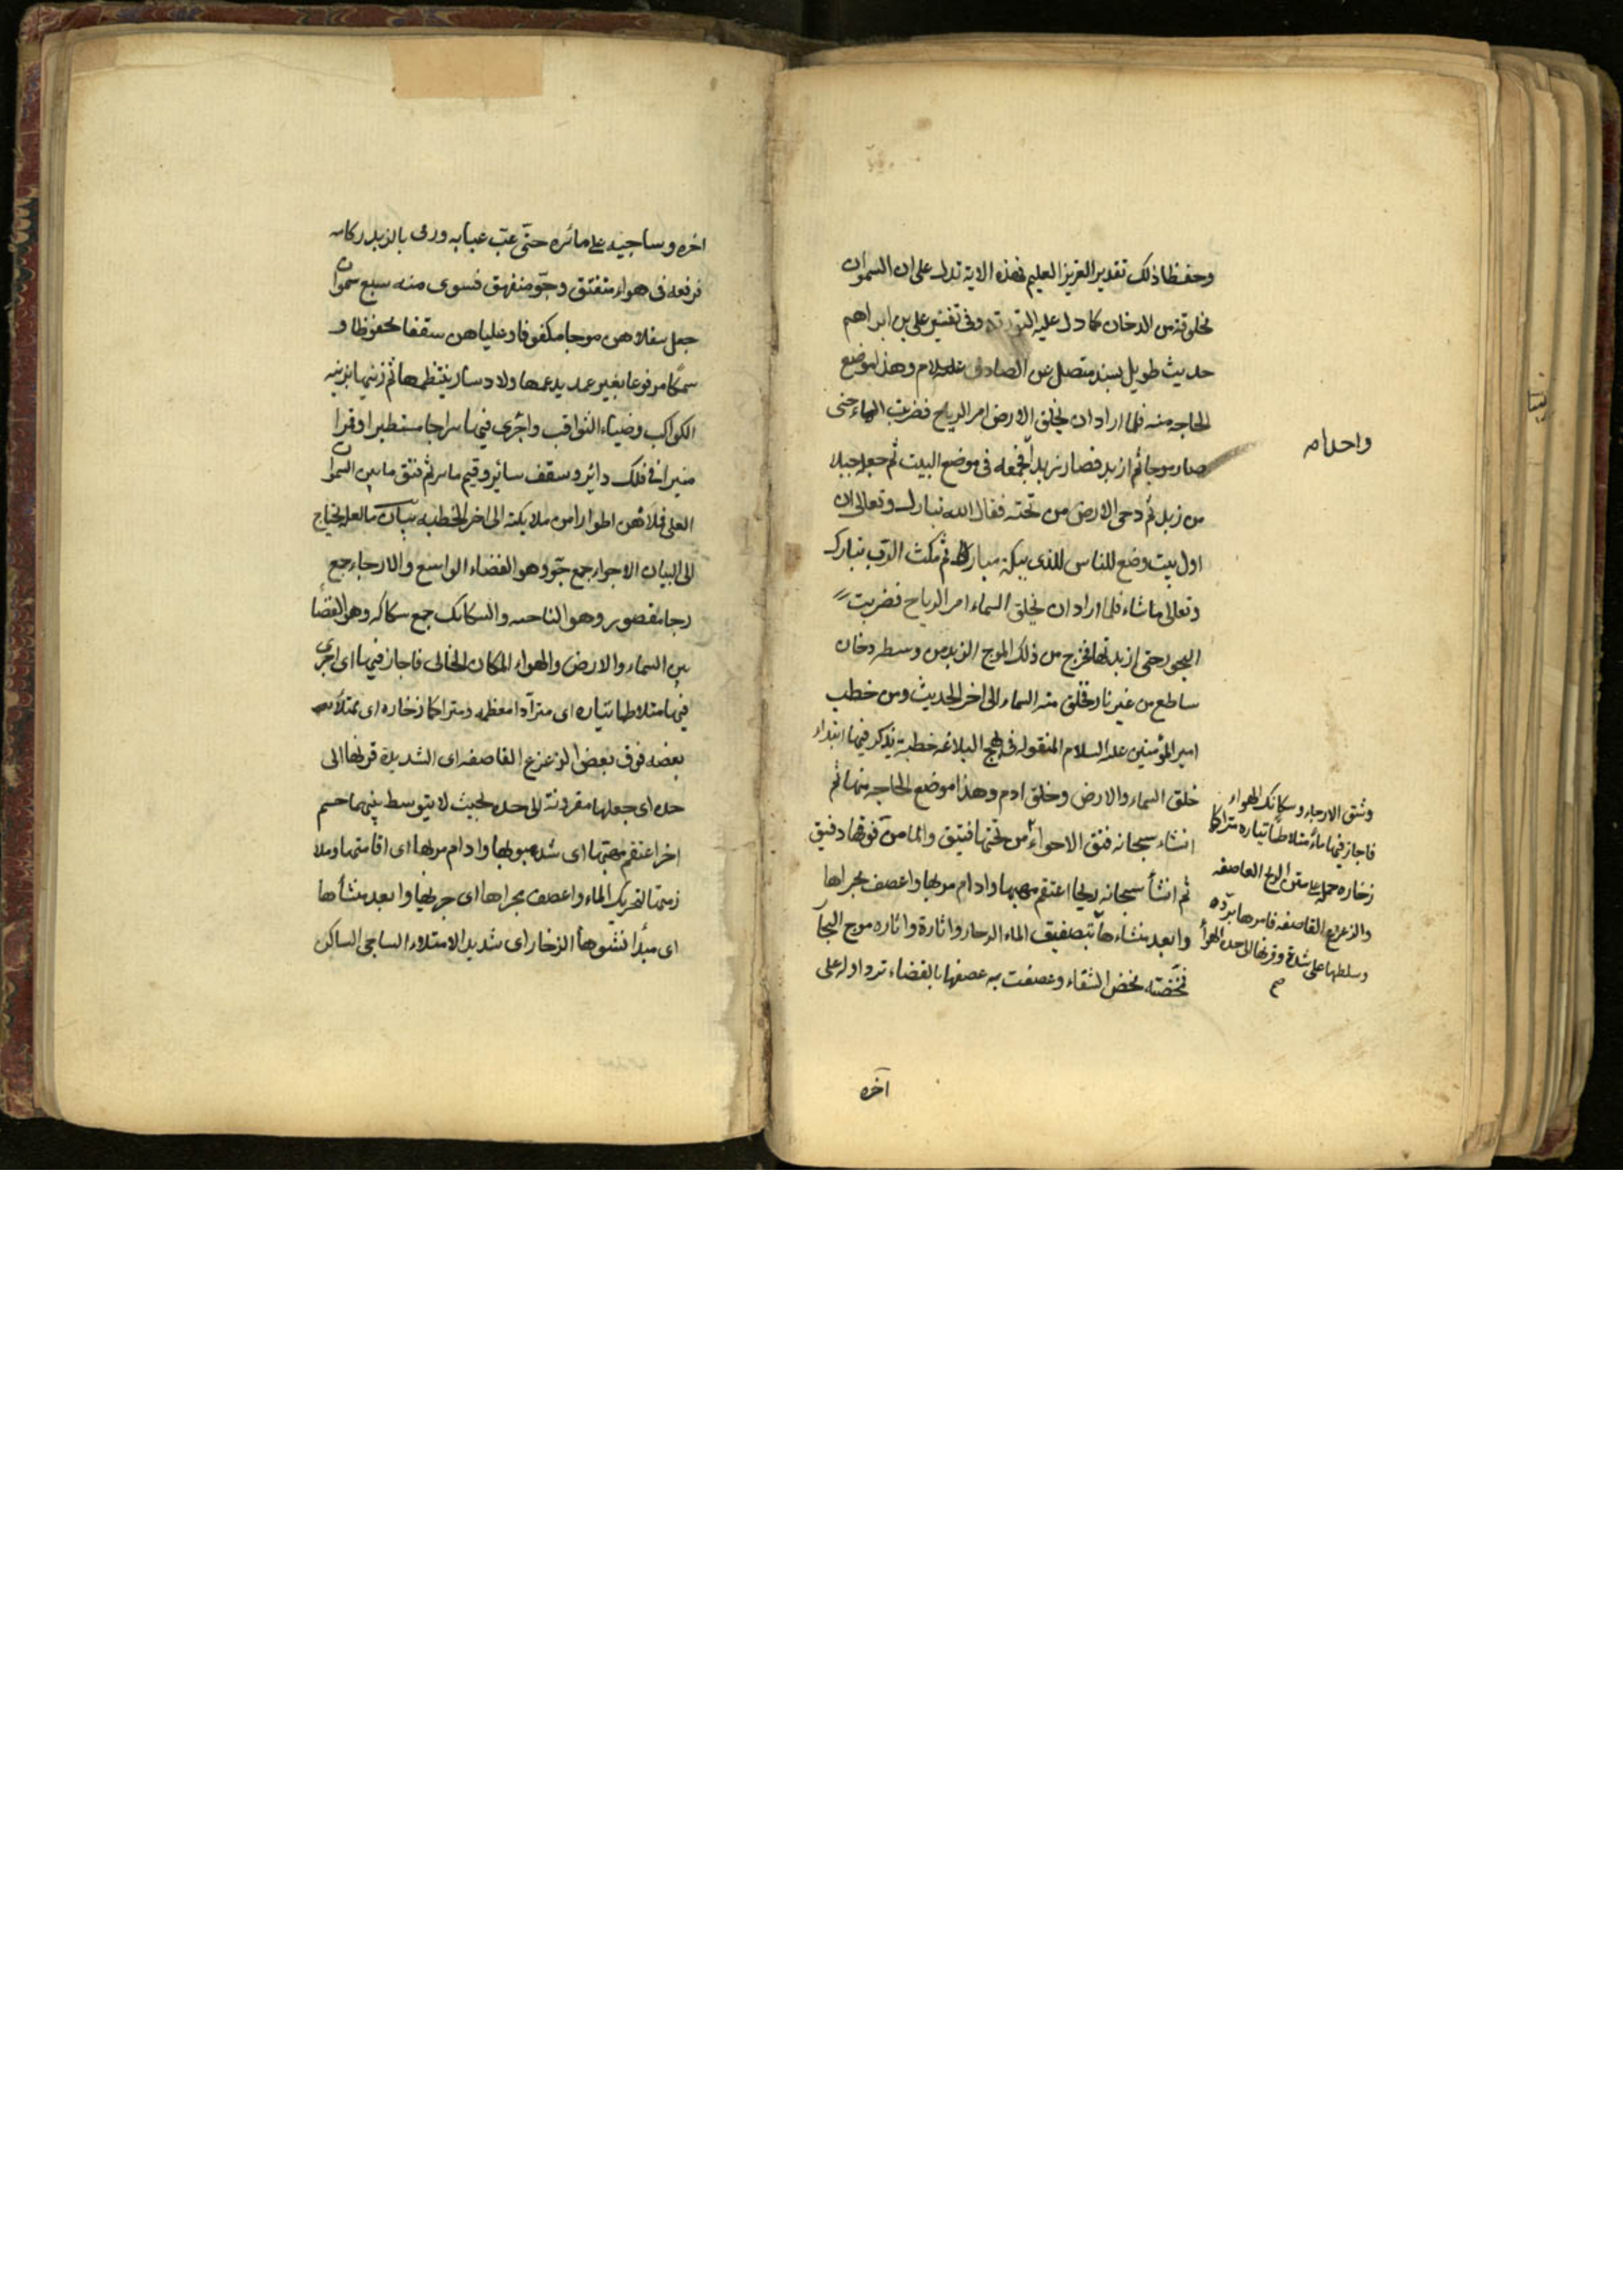 وحفظا ذلك تقدير العزيز العليم فهذه الاية تدل على ان السموات
مخلوقة من الدخان كما دل عليه التورىة وفى تفسير على بن ابراهم
حديث طويل بسند متصل عن الصادق عليه السلام وهذا موضع
الحاجه منه فلما اراد ان يخلق الارض امر الرياح فضربت الماء حتى
صار موجا ثم ازبد فصار زبدا فجمعه فى موضع البيت ثم جعله جبلا
من زبد ثم دحى الارض من تحته فقال الله تبارك وتعالى ان
اول بيت وضع للناس للذى ببكة مباركا ثم مكث الرب تبارك
وتعالى ما شاء فلما اراد ان يخلق السماء امر الرياح فضربت
البحور حتى ازبد بها فخرج من ذلك الموج الزبد من وسطه دخان
ساطع من غير نار فخلق منه السماء الى اخر الحديث ومن خطب
امير المؤمنين عليه السلام المنقوله فى نهج البلاغه خطبة يذكر فيها ابتداء
خلق السماء والارض وخلق ادم وهذا موضع الحاجه منها ثم
انشاء سبحانه فتق الاجواء من تحتها فتيق والما من فوقها دفيق
ثم انشأ سبحانه ريحا اعتقم مهبها وادام مربها واعصف مجراها
وابعد منشاءها بتصفيق الماء الزخار واثارة موج البحا
فمخضته مخض السقاء وعصفت به عصفها بالفضاء ترد اوله على
واحدام
وشق الارجاء وسكائك الهواء
فاجاز فيها ماء متلاطما تياره متراكا
زخاره حمله على متن الريح العاصفه
والزعزع القاصفه فامرها برده
وسلطها على شده وقرنها الى حده الهوا
صح
آخره
اخره وساجيه على مائره حتى عب عبابه ورمى بالزبد ركامه
فرفعه فى هواء منفتق وجو منفهق فسوى منه سبع سموات
جعل سفلاهن موجا مكفوفا وعلياهن سقفا محفوظا و
سمكا مرفوعا بغير عمد يدعمها ولا دسار ينتظمها ثم زينها بزينه
الكواكب وضياء الثواقب واجرى فيها سراجا مستطيرا وقمرا
منيرا فى فلك دائر وسقف سائر ورقيم مائر ثم فتق ما بين السموات
العلى فملائهن اطوارا من ملايكته الى اخر الخطبه بيان ما لعله يحتاج
الى البيان الاجواء جمع جو وهو الفضاء الواسع والارجاء جمع
رجا مقصور وهو الناحيه والسكائك جمع سكاكه وهو الفضا
بين السماء والارض والهواء المكان الخالى فاجاز فيها اى اجرى
فيها متلاطما تياره اى مترادا معظمه ومتراكما زخاره اى ممتلأ
بعضه فوق بعض الزعزع القاصفه اى الشديدة قرنها الى
حده اى جعلها مقرونة الى حده بحيث لا يتوسط بينهما جسم
اخر اعتقم مهبها اى شد هبوبها وادام مربها اى اقامتها وملا
زمتها لتحريك الماء واعصف مجراها اى جريها وابعد منشأها
اى مبدأ نشوها الزخار اى شديد الامتداد الساجى الساكن